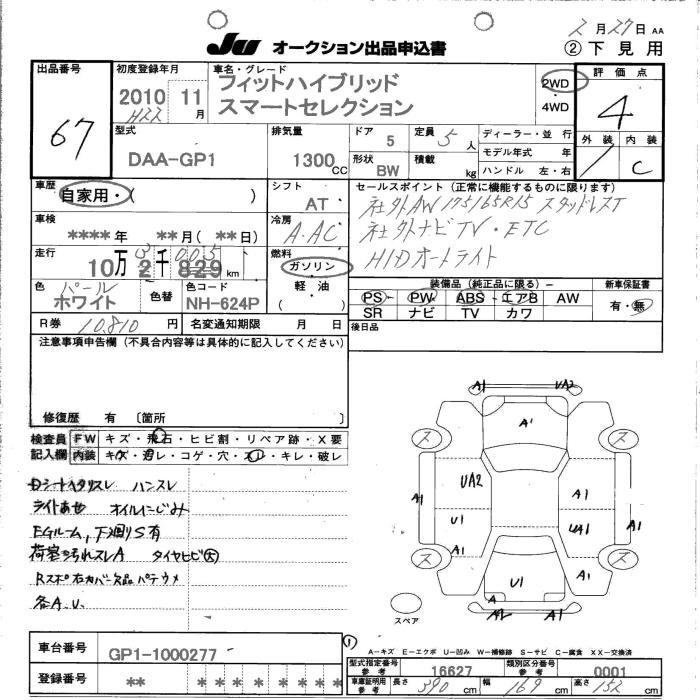 2月27日 AA
JU オークション出品申込書
②下見用
出品番号
67
初度登録年月
2010 11月
H22
車名・グレード
フィットハイブリッド
スマートセレクション
2WD
4WD
評価点
4
外装 内装
C
型式
DAA-GP1
排気量
1300CC
ドア 5
定員 5人
形状 BW
積載 kg
ディーラー・並 行
モデル年式 年
ハンドル 左・右
車歴
自家用・( )
シフト
AT
セールスポイント(正常に機能するものに限ります)
社外AW 175/65R15 スタッドレスT
社外ナビ TV・ETC
HIDオートライト
車検
****年 **月(**日)
冷房
A.AC
走行
10万2千829km
3 005
燃料
ガソリン
軽 油
( )
色
パール
ホワイト
色替
色コード
NH-624P
装備品(純正品に限る)
PS PW ABS エアB AW
SR ナビ TV カワ
新車保証書
有・無
R券 10,810円
名変通知期限 月 日
後日品
注意事項申告欄(不具合内容等は具体的に記入してください)
修復歴 有 〔箇所 〕
検査員
記入欄
FW キズ・飛石・ヒビ割・リペア跡・X要
内装 キズ・汚レ・コゲ・穴・スレ・キレ・破レ
Dシートヘタリスレ ハンスレ
ライトあせ オイルにじみ
EGルーム,下廻りS有
荷室汚れスレA タイヤヒビ大
Rスポ右カバー欠品パテウメ
各A.U.
A1 UA2
A1
ス ス
UA2 A1
A1 U1 UA1 A1
A1 A1
ス ス
U1
A
A1
スペア
A-キズ E-エクボ U-凹み W-補修跡 S-サビ C-腐食 XX-交換済
車台番号
GP1-1000277
登録番号
** * * * * * * *
型式指定番号
参考
16627
類別区分番号
参考
0001
車庫証明用
参考
長さ 390cm
幅 169cm
高さ 152cm